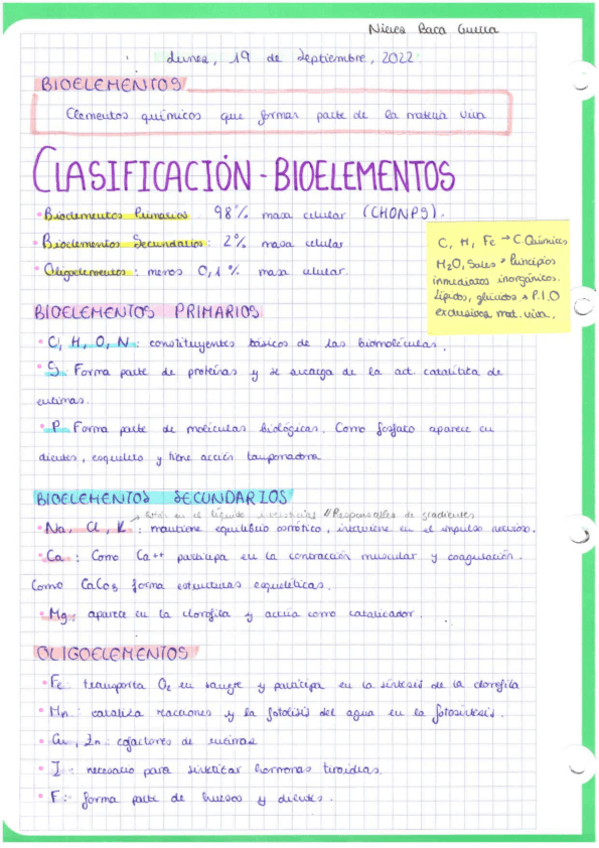 Nieves Baca Guerra
Lunes, 19 de Septiembre, 2022
BIOELEMENTOS
Elementos químicos que forman parte de la materia viva
CLASIFICACIÓN - BIOELEMENTOS
• Bioelementos Primarios: 98% masa celular (CHONPS).
• Bioelementos Secundarios: 2% masa celular
• Oligoelementos: menos 0,1% masa celular.
C, H, Fe → C. Químicos
H2O, Sales → Principios
inmediatos inorgánicos.
Lípidos, glúcidos → P.I.O
exclusivos mat. viva.
BIOELEMENTOS PRIMARIOS
• C, H, O, N: constituyentes básicos de las biomoléculas.
• S: Forma parte de proteínas y se encarga de la act. catalítica de
enzimas.
• P: Forma parte de moléculas biológicas. Como fosfato aparece en
dientes, esqueleto y tiene acción tamponadora
BIOELEMENTOS SECUNDARIOS
→ Están en el líquido // Responsables de gradientes
• Na, Cl, K: mantiene equilibrio osmótico, interviene en el impulso nervioso.
• Ca: Como Ca++ participa en la contracción muscular y coagulación.
Como CaCO3 forma estructuras esqueléticas.
• Mg: aparece en la clorofila y actúa como catalizador.
OLIGOELEMENTOS
• Fe: transporta O2 en sangre y participa en la síntesis de la clorofila
• Mn: cataliza reacciones y la fotólisis del agua en la fotosíntesis.
• Cu, Zn: cofactores de enzimas
• I: necesario para sintetizar hormonas tiroideas.
• F: forma parte de huesos y dientes.